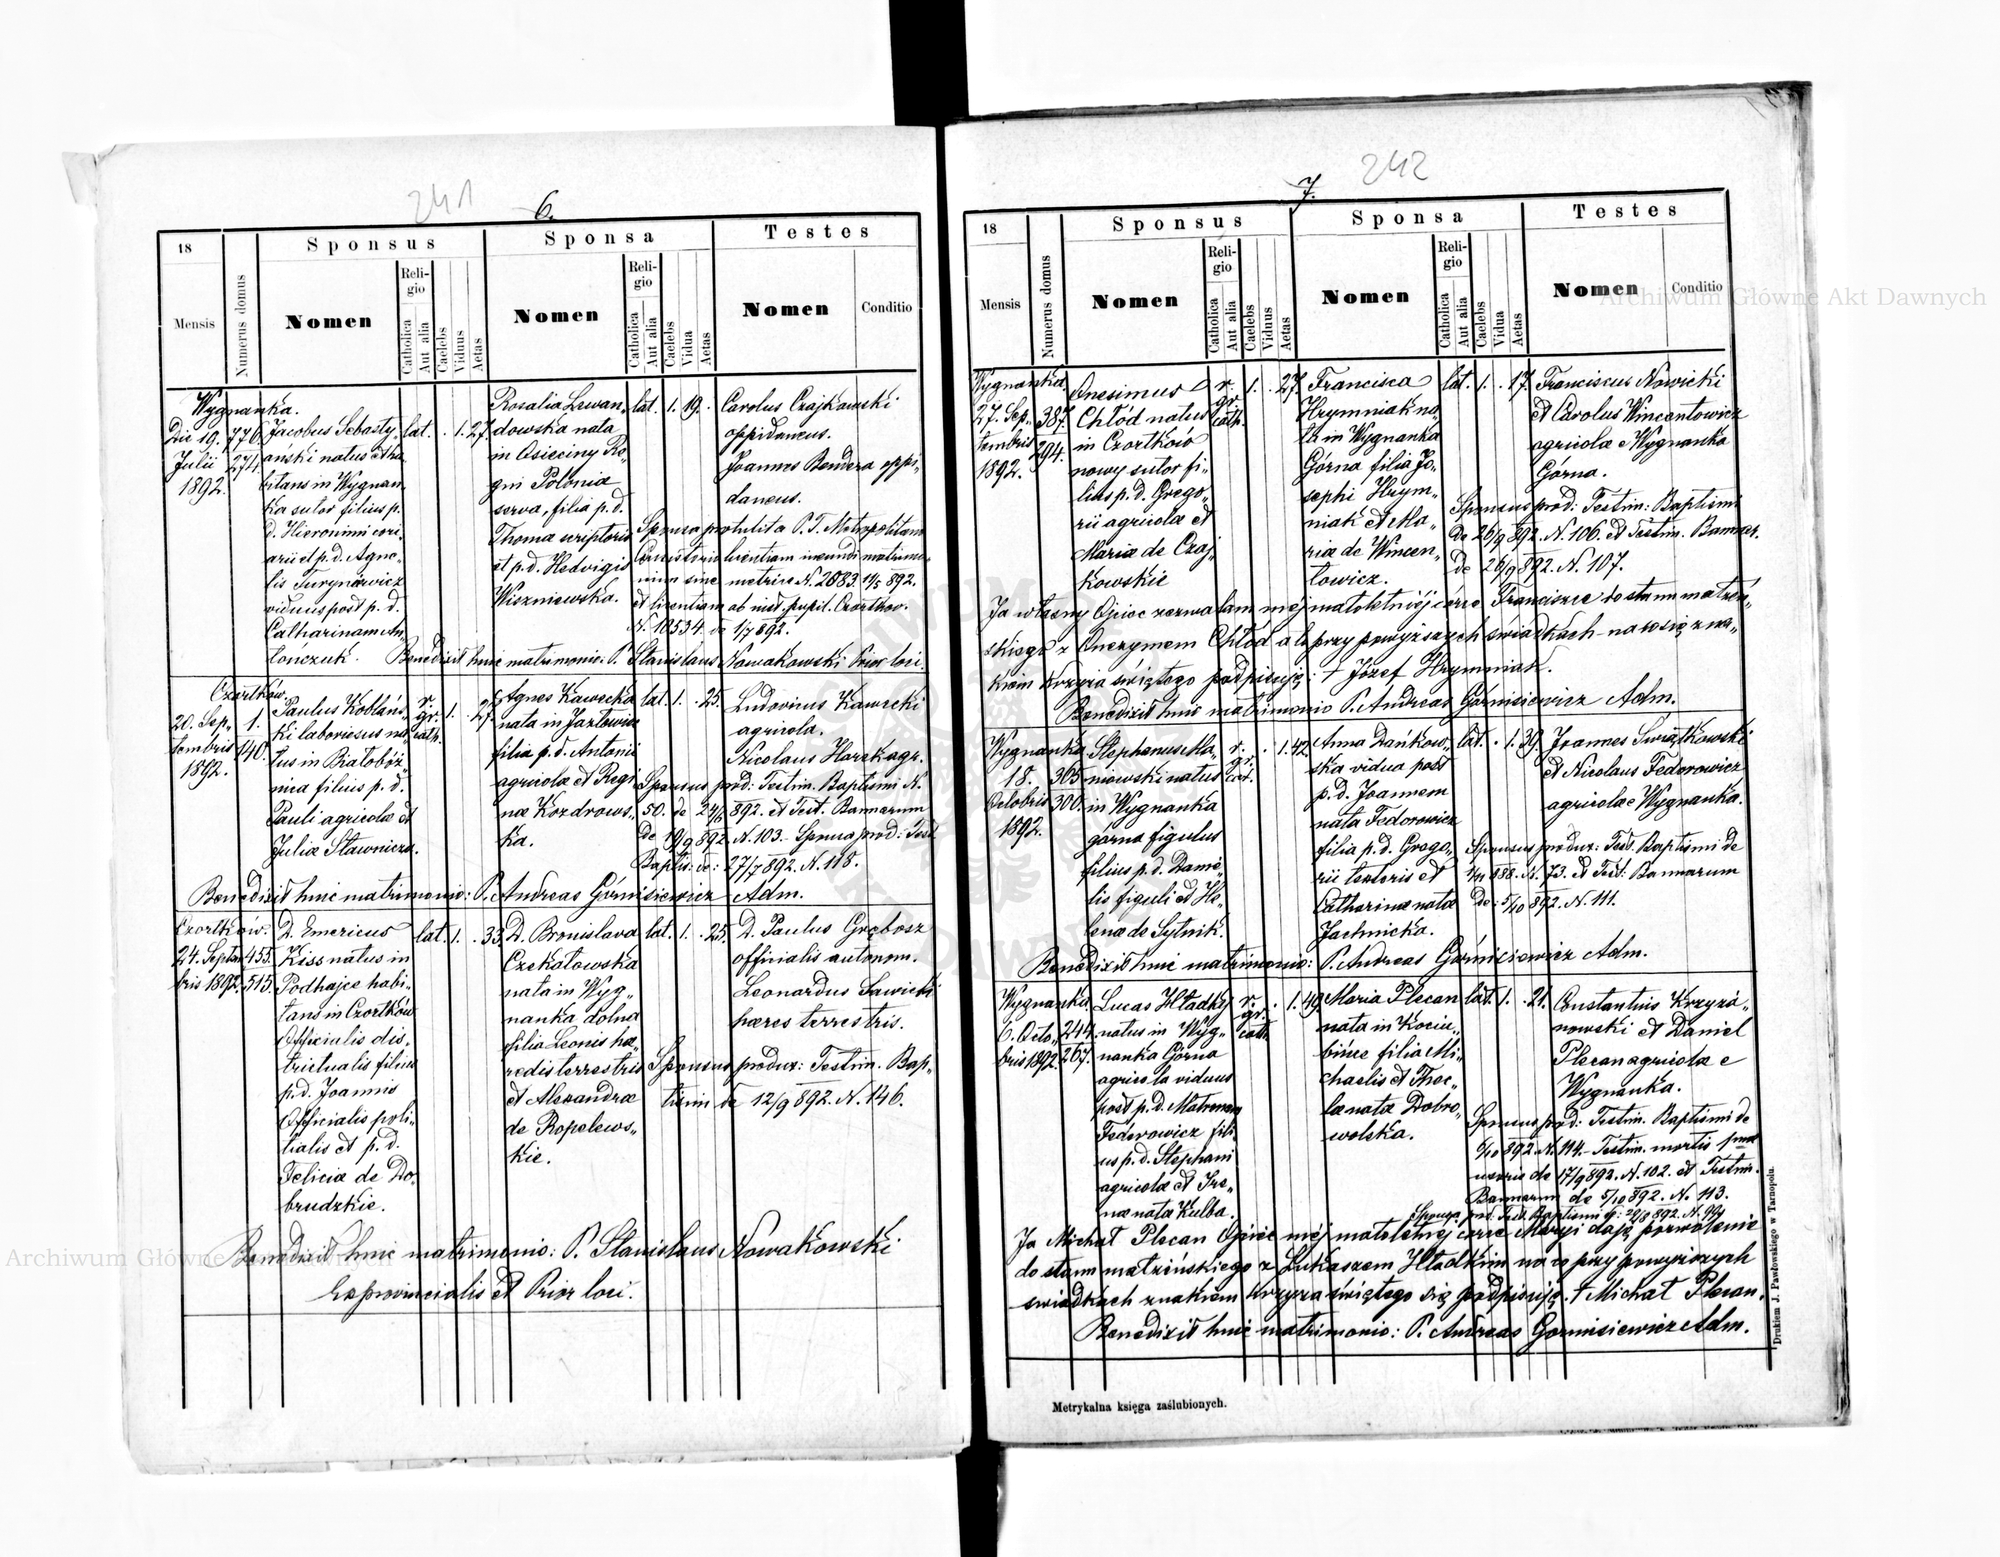 241
6.
18
Sponsus
Sponsa
Testes
Mensis
Numerus domus
Nomen
Religio
Catholica
Aut alia
Caelebs
Viduus
Aetas
Nomen
Religio
Catholica
Aut alia
Caelebs
Vidua
Aetas
Nomen
Conditio
Wygnanka.
Die 19.
Julii
1892.
776.
274.
Jacobus Sebasty„
anski natus et ha
bitans in Wygnan„
ka sutor filius p.
d. Hieronimi cori„
arii et p. d. Agne„
tis Turynowicz
viduus post p. d.
Catharinam An„
tończuk.
lat. . 1. 27.
Rosalia Lewan„
dowska nata
in Osieciny Re„
gni Poloniæ
serva, filia p. d.
Thomæ scriptoris
et p. d. Hedvigis
Wiszniewska.
lat. 1. 19.
Carolus Czajkowski
oppidaneus.
Joannes Bendera oppi„
daneus.
Sponsa protulit a P. T. Metropolitano
Consistorio licentiam ineundi matrimo„
nium sine metrica N. 2683 892.
et licentiam ab pupil. Czortkov.
N. 10534. de 1/7 892.
Benedixit huic matrimonio: P. Stanislaus Nowakowski Prior loci.
Czortków.
20. Sep„
tembris
1892.
1.
140.
Paulus Koblańs„
ki laboriosus na„
tus in Białoboż„
nica filius p. d.
Pauli agricolæ et
Juliæ Sławnicza.
r. gr. cath. 1. . 27.
Agnes Kawecka
nata in Jazłowiec
filia p. d. Antonii
agricolæ et Regi
næ Kozdrows„
ka.
lat. 1. . 25.
Ludovicus Kawecki
agricola.
Nicolaus Horek agr.
Sponsus prod: Testim. Baptismi N.
50. de 892. et Test. Bannorum
de 19/9 892. N. 103. Sponsa prod: Test.
Baptis. de: 27/7 892. N. 118.
Benedixit huic matrimonio: P. Andreas Górnisiewicz Adm.
Czortków.
24. Septem
bris 1892.
455.
515.
D. Emericus
Kiss natus in
Podhajce habi„
tans in Czortków
Officialis dis„
trictualis filius
p. d. Joannis
Officialis poli„
tialis et p. d.
Felicia de Do„
brudzkie.
lat. 1. . 33.
D. Bronislava
Czekałowska
nata in Wyg„
nanka dolna
filia Leonis hæ„
redis terrestris
et Alexandræ
de Ropelews„
kie.
lat. 1. . 25.
D. Paulus Grębosz
officialis autonom.
Leonardus Sawicki
hæres terrestris.
Sponsus produx: Testim. Bap„
tismi de 12/9 892. N. 146.
Benedixit huic matrimonio: P. Stanislaus Nowakowski
Exprovincialis et Prior loci.
242
7.
18
Sponsus
Sponsa
Testes
Mensis
Numerus domus
Nomen
Religio
Catholica
Aut alia
Caelebs
Viduus
Aetas
Nomen
Religio
Catholica
Aut alia
Caelebs
Vidua
Aetas
Nomen
Conditio
Wygnanka.
27. Sep„
tembris
1892.
387.
294.
Onesimus
Chłód natus
in Czortków
nowy sutor fi„
lius p. d. Grego„
rii agricolæ et
Mariæ de Czaj„
kowskie
r. gr. cath. 1. . 27.
Francisca
Hrymniak na„
ta in Wygnanka
Górna filia Jo„
sephi Hrym„
niak et Ma„
riæ de Wincen„
towicz.
lat. 1. . 17.
Franciscus Nowicki
et Carolus Wincentowicz
agricolæ e Wygnanka
Górna.
Sponsus prod: Testim: Baptismi
de 26/9 892. N. 106. et Testim. Bannor.
de 26/9 892. N. 107.
Ja własny Ojciec zezwalam mej małoletniej córce Franciszce do stanu małżeń„
skiego z Onezymem Chłód a to przy powyższych świadkach na co się zna„
kiem krzyża świętego podpisuję: † Józef Hrymniak.
Benedixit huic matrimonio P. Andreas Górnisiewicz Adm.
Wygnanka
18.
Octobris
1892.
365
300.
Stephanus Ma„
niowski natus
in Wygnanka
górna figulus
filius p. d. Danie„
lis figuli et He„
lenæ de Sytnik.
r. gr. cat. . 1. 42.
Anna Dańkow„
ska vidua post
p. d. Joannem
nata Fedorowicz
filia p. d. Grego„
rii textoris et
Catharinæ nata
Jachnicka.
lat. . 1. 39.
Joannes Świątkowski
et Nicolaus Fedorowicz
agricolæ e Wygnanka.
Sponsus produx: Test. Baptismi de
N. 73. et Test. Bannorum
de: 5/10 892. N. 111.
Benedixit huic matrimonio: P. Andreas Górnisiewicz Adm.
Wygnanka.
6. Octo„
bris 1892.
244.
267.
Lucas Hładkÿ
natus in Wyg„
nanka Górna
agricola viduus
post p. d. Matronam
Federowicz fili„
us p. d. Stephani
agricolæ et Ire„
næ nata Kulba.
r. gr. cath. . 1. 49.
Maria Plecan
nata in Kociu„
bińce filia Mi„
chaelis et Thec„
læ nata Dobro„
wolska.
lat. 1. . 21.
Constantius Krzyża„
nowski et Daniel
Plecan agricolæ e
Wygnanka.
Sponsus prod: Testim. Baptismi de
6/10 892. N. 114. Testim. mortis
uxoris de 17/9 892. N. 102. et Testim.
Bannorum de 5/10 892. N. 113.
Sponsa prod: Test. Baptismi 892. N.
Ja Michał Plecan Ojciec mej małoletniej córce Maryi daję pozwolenie
do stanu małżeńskiego z Łukaszem Hładkim na co przy powyższych
świadkach znakiem krzyża świętego się podpisuję. † Michał Plecan.
Benedixit huic matrimonio: P. Andreas Górnisiewicz Adm.
Metrykalna księga zaślubionych.
Drukiem J. Pawłowskiego w Tarnopolu.
Archiwum Główne Akt Dawnych
Archiwum Główne Akt Dawnych